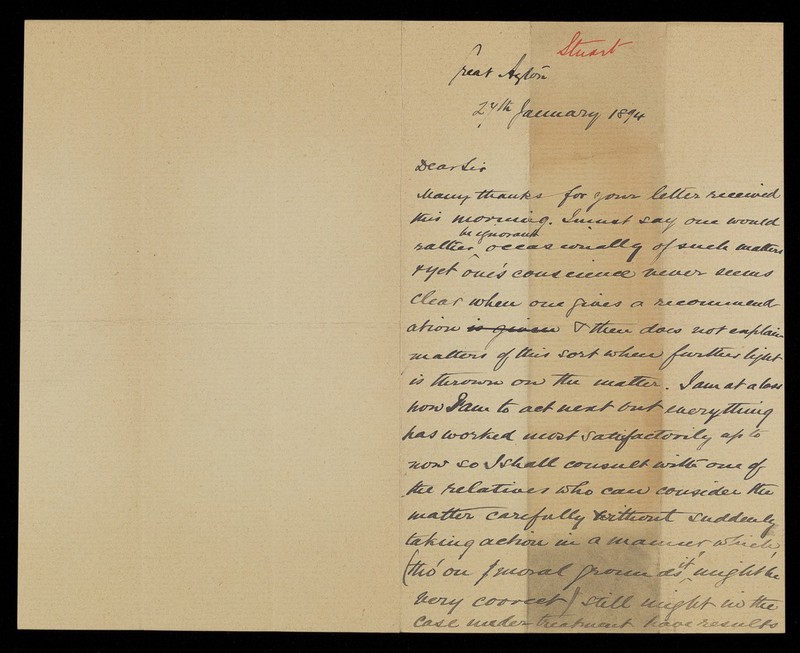 Stuart
Great Ayton
24th January 1894
Dear Sir
Many thanks for your letter received
this morning. I must say one would
be ignorant
rather occasionally of such matters
& yet one's conscience never seems
clear when one gives a recommend-
ation is given & then does not explain
matters of this sort when further light
is thrown on the matter. I am at a loss
how I am to act next but everything
has worked most satisfactorily up to
now so I shall consult with one of
the relatives who can consider the
matter carefully without suddenly
taking action in a manner, which
(tho' on moral grounds it might be
very correct) still might in the
case under treatment have results